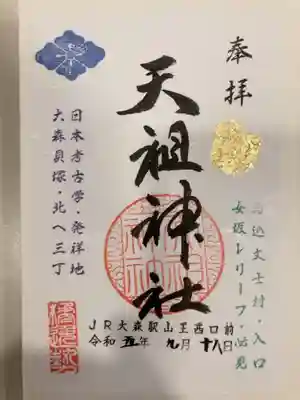 奉拝
馬込文士村・入口
女坂レリーフ・必見
天祖神社
日本考古学・発祥地
大森貝塚・北へ三丁
JR大森駅山王西口前
令和五年 九月 十八日